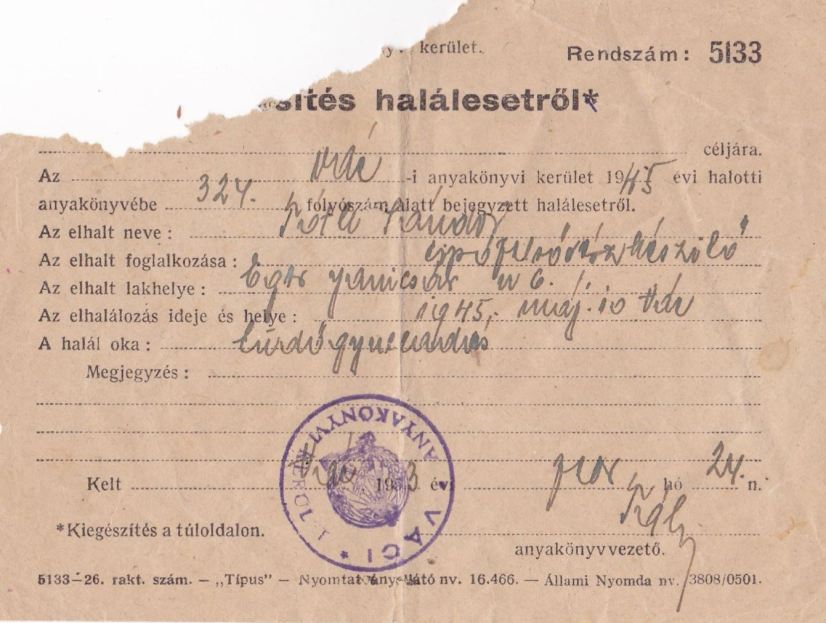 kerület. Rendszám: 5133
sítés halálesetről*
céljára.
Az Vác -i anyakönyvi kerület 1945 évi halotti
anyakönyvébe 324. folyószám alatt bejegyzett halálesetről.
Az elhalt neve: Tóth Sándor
Az elhalt foglalkozása:
Az elhalt lakhelye: Eger Janicsár u 6.
Az elhalálozás ideje és helye: 1945. máj. 10 Vác
A halál oka:
Megjegyzés:
Kelt Vác 1953 évi hó 24. n.
*Kiegészítés a túloldalon.
anyakönyvvezető.
VÁCI ANYAKÖNYVI
5133—26. rakt. szám. — „Típus" — Nyomtatványellátó nv. 16.466. — Állami Nyomda nv. 3808/0501.